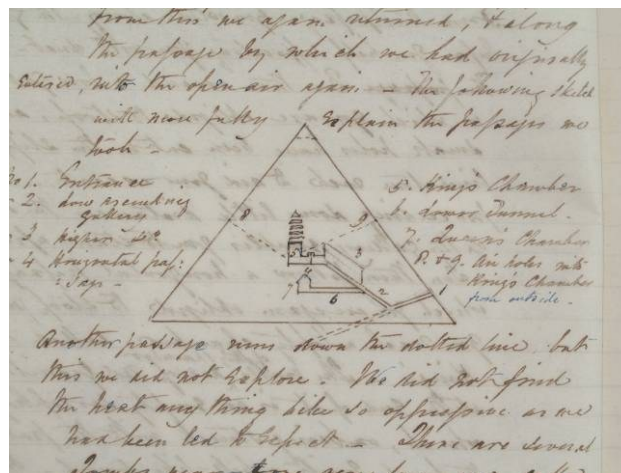 From this we again returned, & along
the passage by which we had originally
entered, into the open air again – The following sketch
will more fully explain the passages we
took –
No 1. Entrance
2. Low ascending
gallery
3 Higher Do
4 Horizontal pas:
:sage –
5. King's Chamber
6. Lower Tunnel.
7. Queen's Chamber
8. & 9. Air holes into
King's Chamber
from outside.
8
9
5
3
4
7
6
2
1
Another passage runs down the dotted line, but
this we did not explore. We did not find
the heat any thing like so oppressive as we
had been led to expect – There are several